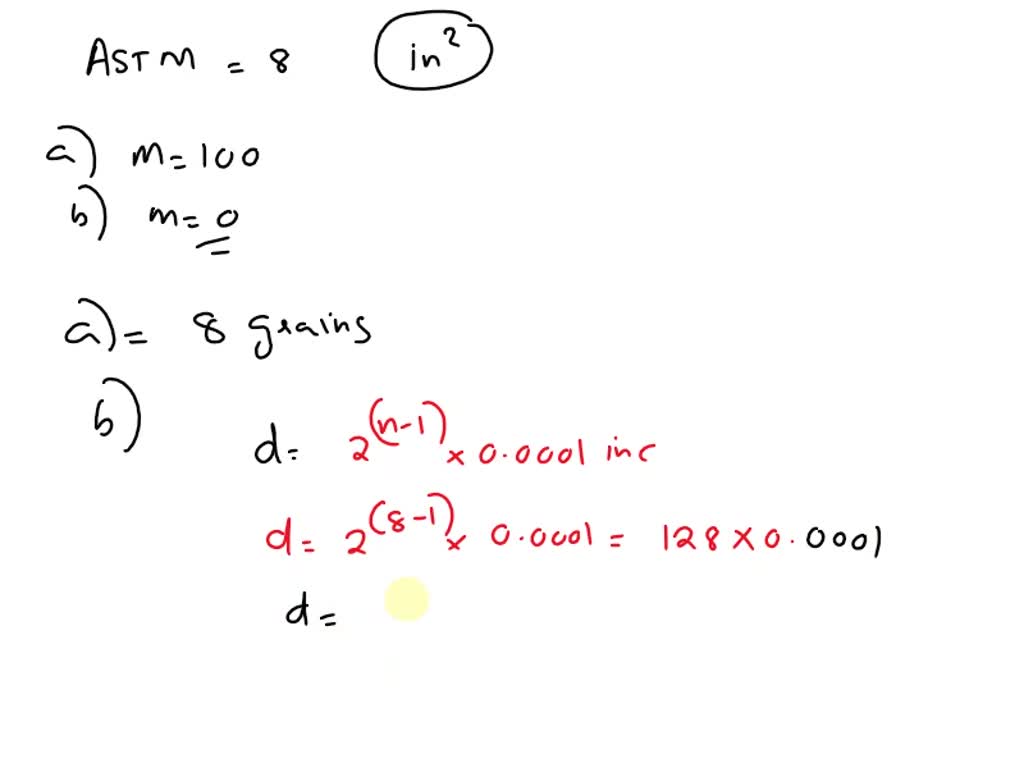 ASTM = 8 in²
a) m=100
b) m=0
a)= 8 grains
b)
d= 2^(n-1) × 0.0001 inc
d= 2^(8-1) × 0.0001 = 128 × 0.0001
d=